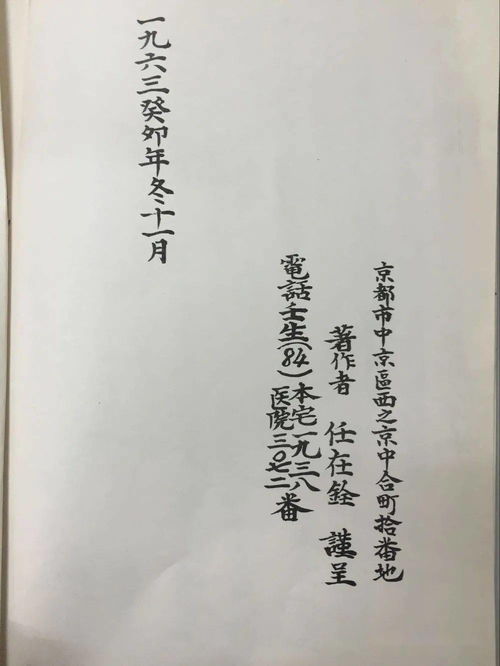 京都市中京區西之京中合町拾番地
著作者 任在銓 謹呈
電話壬生(84)本宅一九三八医院三〇七二番
一九六三癸卯年冬十一月